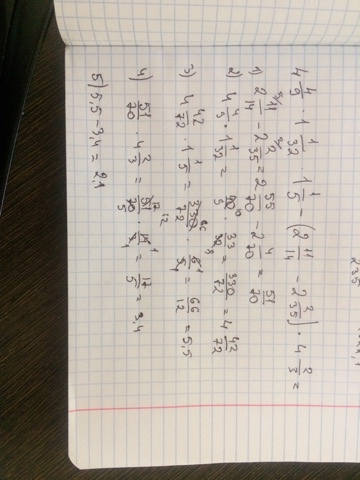 4 4/9 · 1 1/32 · 1 1/5 − (2 11/14 − 2 2/35) · 4 2/3 =
1) 2 11/14 − 2 2/35 = 2 55/70 − 2 4/70 = 51/70
2) 4 4/9 · 1 1/32 = 40/9 · 33/32 = 330/72 = 4 42/72
3) 4 42/72 · 1 1/5 = 330/72 · 6/5 = 66/12 = 5,5
4) 51/70 · 4 2/3 = 51/70 · 14/3 = 17/5 = 3,4
5) 5,5 − 3,4 = 2,1